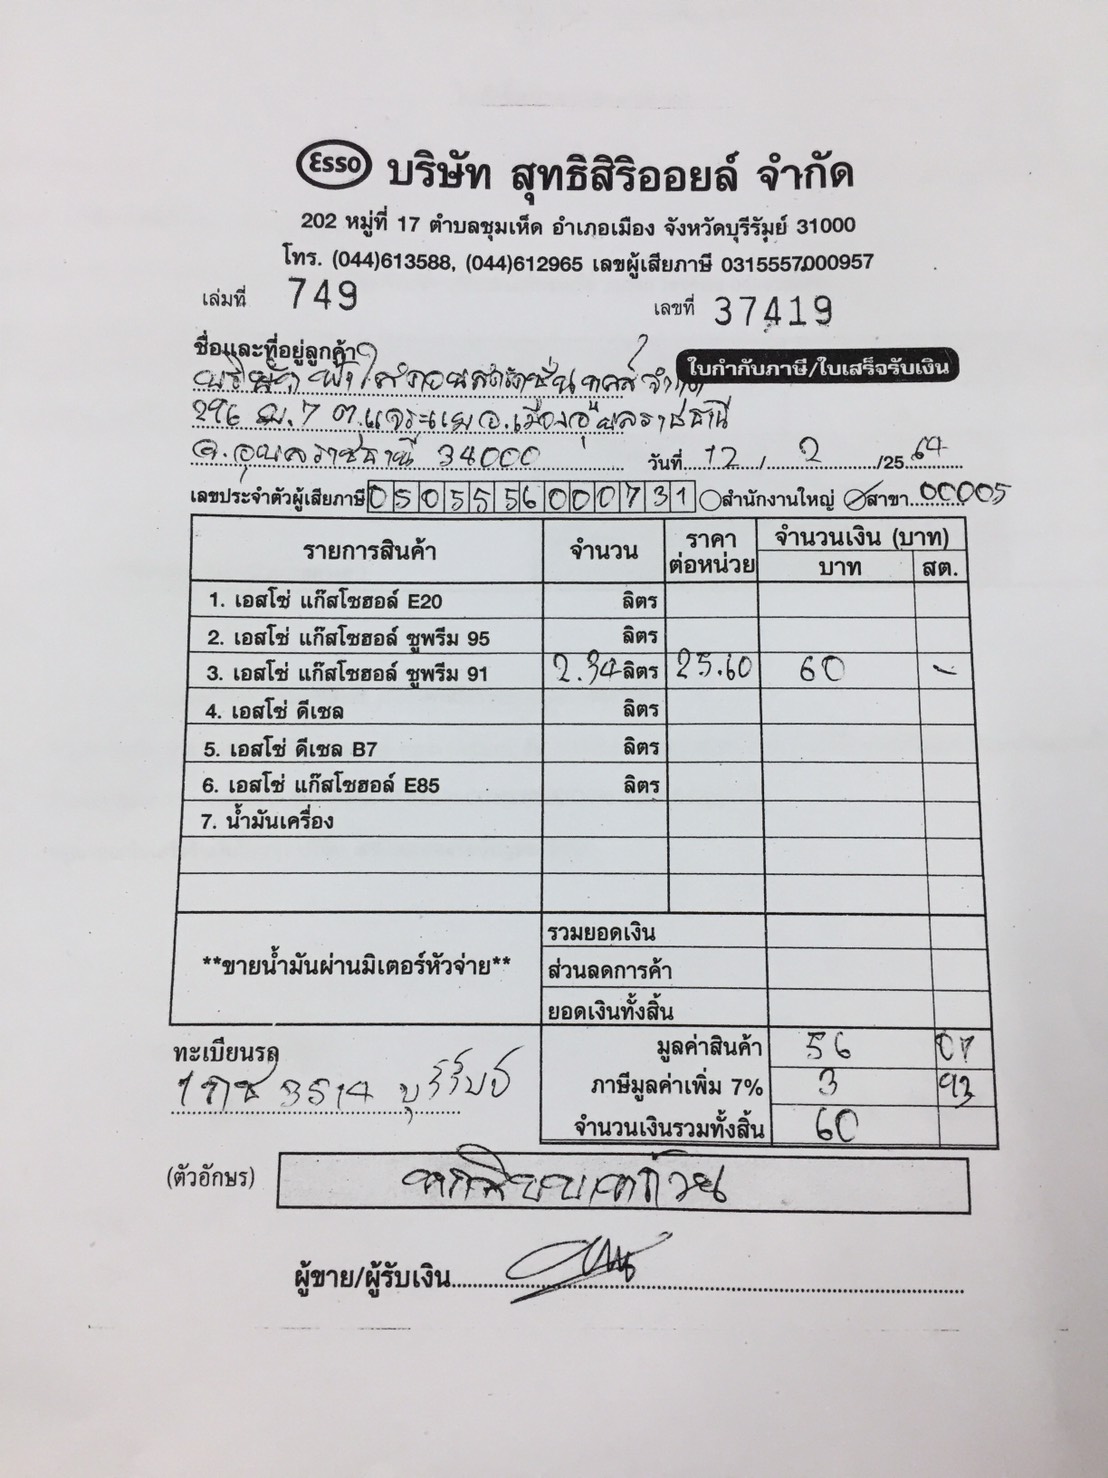 Esso บริษัท สุทธิสิริออยล์ จำกัด
202 หมู่ที่ 17 ตำบลชุมเห็ด อำเภอเมือง จังหวัดบุรีรัมย์ 31000
โทร. (044)613588, (044)612965 เลขผู้เสียภาษี 0315557000957
เล่มที่ 749 เลขที่ 37419
ชื่อและที่อยู่ลูกค้า
ใบกำกับภาษี/ใบเสร็จรับเงิน
บริษัท ฟ้าใส คอนสตรัคชั่น จำกัด
296 ม.7 ต.แจระแม อ.เมืองอุบลราชธานี
จ.อุบลราชธานี 34000 วันที่ 12 / 2 /25 64
เลขประจำตัวผู้เสียภาษี 0505556000731 สำนักงานใหญ่ สาขา 00005
รายการสินค้า จำนวน ราคาต่อหน่วย จำนวนเงิน (บาท)
บาท สต.
1. เอสโซ่ แก๊สโซฮอล์ E20 ลิตร
2. เอสโซ่ แก๊สโซฮอล์ ซูพรีม 95 ลิตร
3. เอสโซ่ แก๊สโซฮอล์ ซูพรีม 91 2.34 ลิตร 25.60 60 -
4. เอสโซ่ ดีเซล ลิตร
5. เอสโซ่ ดีเซล B7 ลิตร
6. เอสโซ่ แก๊สโซฮอล์ E85 ลิตร
7. น้ำมันเครื่อง
รวมยอดเงิน
**ขายน้ำมันผ่านมิเตอร์หัวจ่าย** ส่วนลดการค้า
ยอดเงินทั้งสิ้น
ทะเบียนรถ มูลค่าสินค้า 56 07
1กช 3514 บุรีรัมย์ ภาษีมูลค่าเพิ่ม 7% 3 93
จำนวนเงินรวมทั้งสิ้น 60
(ตัวอักษร) หกสิบบาทถ้วน
ผู้ขาย/ผู้รับเงิน